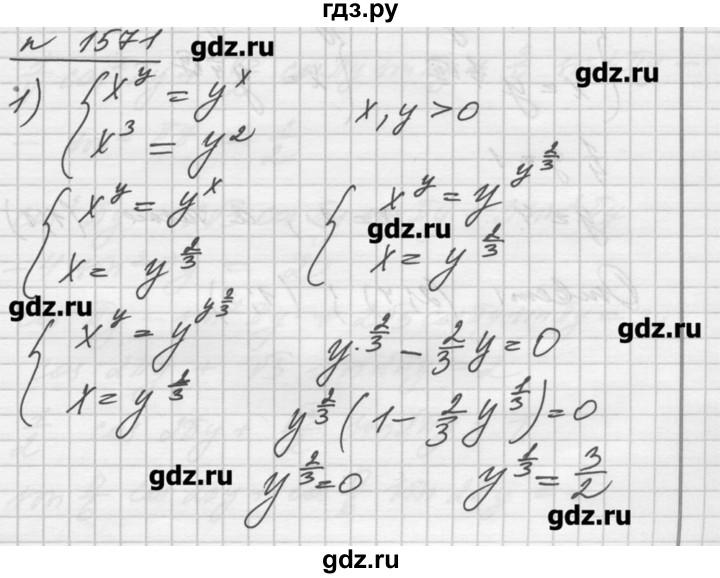 гдз.ру
n 1571
gdz.ru
gdz.ru
1) { x^y = y^x
x^3 = y^2
x, y > 0
{ x^y = y^x
x = y^{2/3}
{ x^y = y^{y^{2/3}}
x = y^{2/3}
gdz.ru
gdz.ru
{ x^y = y^{y^{2/3}}
x = y^{1/3}
gdz.ru
y·^{2/3} - 2/3 y = 0
y^{2/3} (1 - 2/3 y^{1/3}) = 0
gdz.ru
y^{2/3} = 0
y^{1/3} = 3/2
gdz.ru
gdz.ru